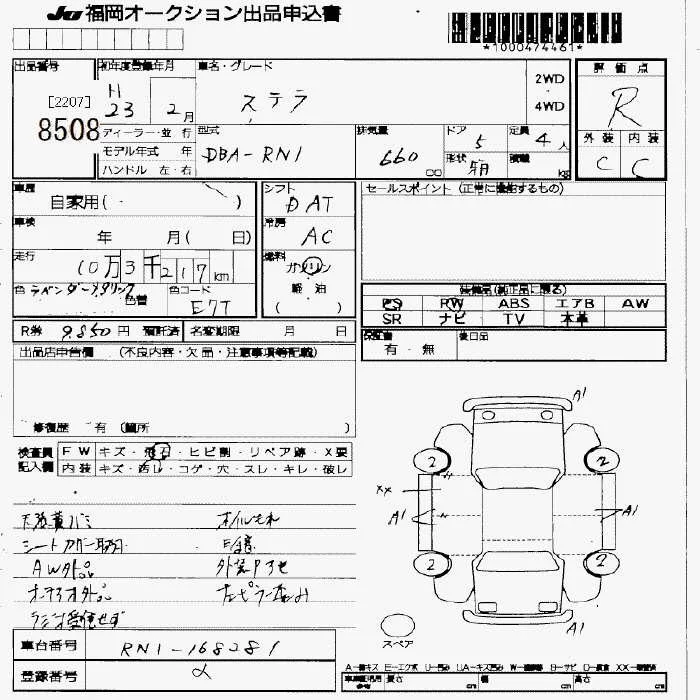 JU 福岡オークション出品申込書
*1000474461*
出品番号
[2207]
8508
初年度登録年月
H
23 2月
車名・グレード
ステラ
2WD
4WD
評価点
R
外装 内装
C C
ディーラー・並行
モデル年式 年
ハンドル 左・右
型式
DBA-RN1
排気量
660
cc
ドア
5
定員
4人
形状
箱
積載
kg
車歴
自家用( )
車検
年 月( 日)
走行
10万3千217km
色 ラベンダーメタリック
色替
色コード
E7T
シフト
DAT
冷房
AC
燃料
ガソリン
軽油
( )
セールスポイント(正常に機能するもの)
装備品(純正品に限る)
PS PW ABS エアB AW
SR ナビ TV 本革
保証書
有・無
後日品
R券 9,850円 預託済 名変期限 月 日
出品店申告欄 (不良内容・欠品・注意事項等記載)
修復歴 有(箇所 )
検査員
記入欄
FW キズ・飛石・ヒビ割・リペア跡・X要
内装 キズ・汚レ・コゲ・穴・スレ・キレ・破レ
シートカバー取付
AW外品
オーデオ外品
ラジオ受信せず
オイルもれ
車台番号
RN1-168281
登録番号
A1
2
2
XX
A1
A1
2
2
A1
スペア
長さ cm 幅 cm 高さ cm